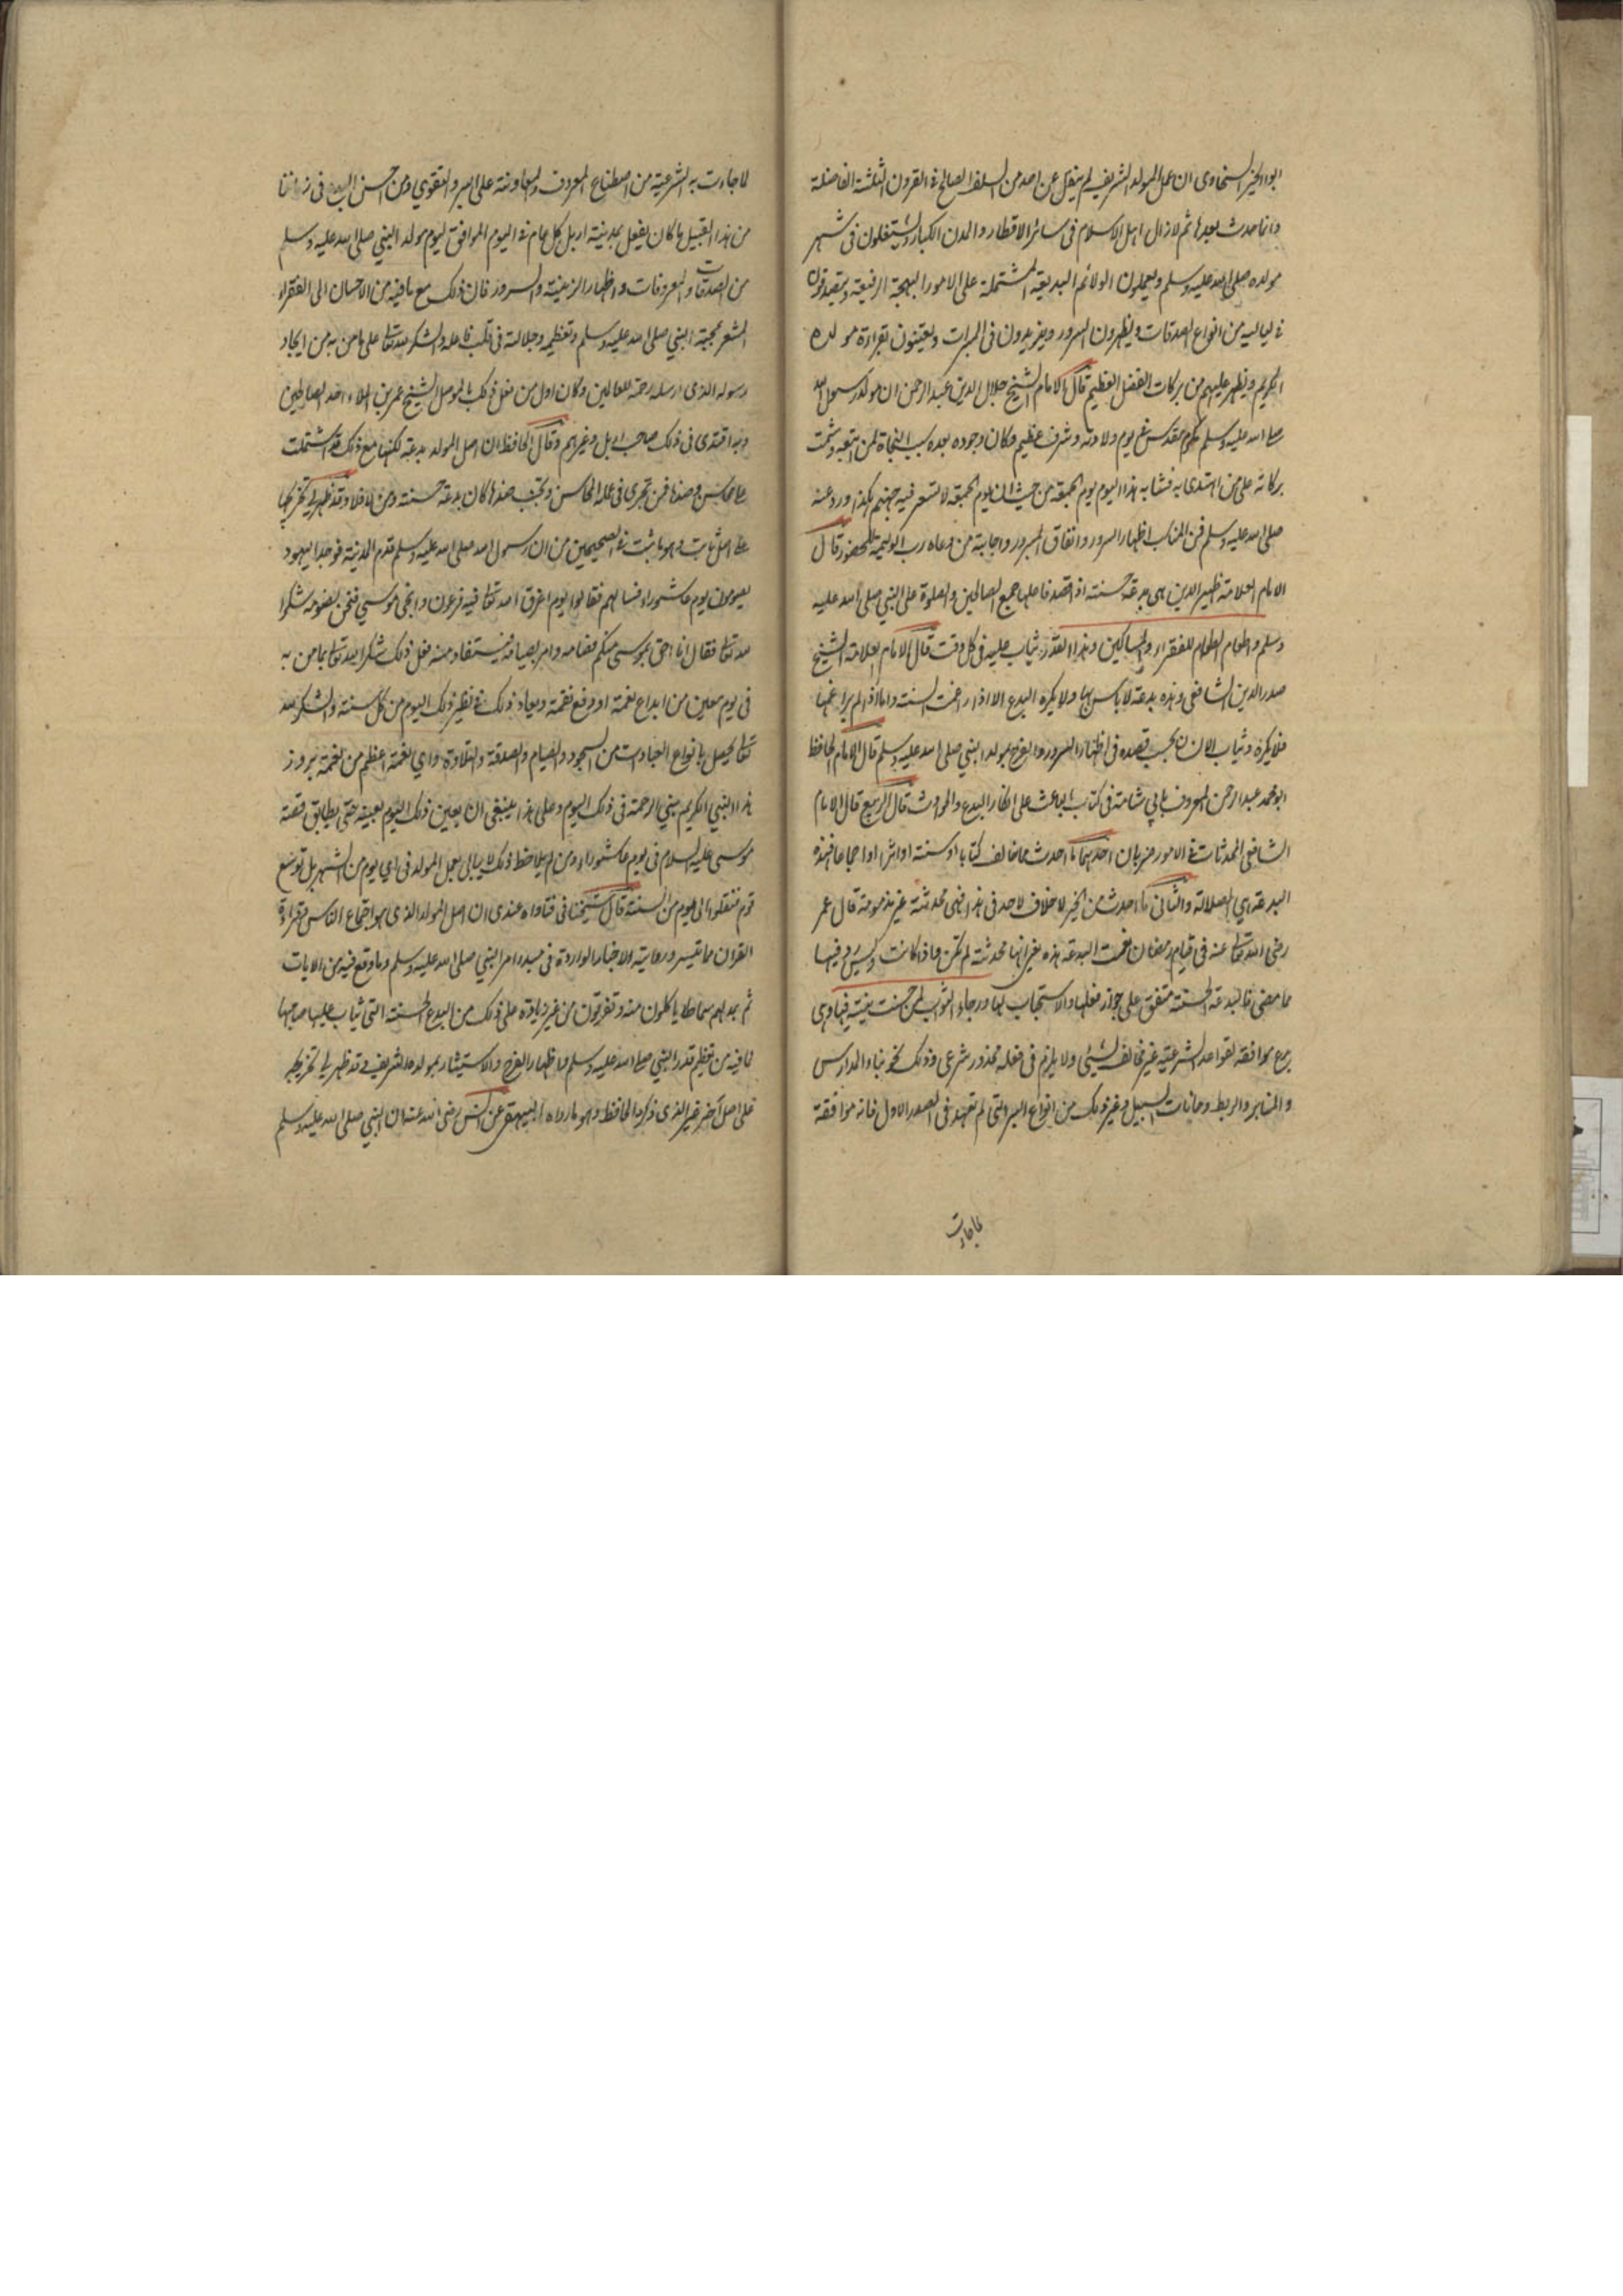 ابو الخير السخاوى ان عمل المولد الشريف لم ينقل عن احد من السلف الصالح فى القرون الثلثة الفاضلة
وانما حدث بعدها ثم لا زال اهل الاسلام فى سائر الاقطار والمدن الكبار يشتغلون فى شهر
مولده صلى الله عليه وسلم ويعملون الولائم البديعة المشتملة على الامور البهجة الرفيعة ويتصدقون
فى لياليه من انواع الصدقات ويظهرون السرور ويزيدون فى المبرات ويعتنون بقراءة مولده
الكريم ويظهر عليهم من بركات الفضل العظيم قال الامام الشيخ جلال الدين عبد الرحمن ان مولد رسول الله
صلى الله عليه وسلم مكرم مقدس يوم ولادته وشرف عظيم وكان وجوده بعده سبب النجاة لمن اتبعه وتمت
بركاته على من اهتدى به فشابه هذا اليوم يوم الجمعة من حيث ان يوم الجمعة لا تسعر فيه جهنم هكذا ورد عنه
صلى الله عليه وسلم فمن المناسب اظهار السرور وانفاق الميسور واجابة من دعاه رب الوليمة للحضور قال
الامام العلامة ظهير الدين هى بدعة حسنة اذا قصد فاعلها جمع الصالحين والصلوة على النبي صلى الله عليه
وسلم واطعام الطعام للفقراء والمساكين وهذا القدر يثاب عليه فى كل وقت قال الامام العلامة الشيخ
صدر الدين الشافعى وهذه بدعة لا باس بها ولا يكره البدع الا اذا راغمت السنة واما اذا لم يراغمها
فلا يكره ويثاب الانسان بحسب قصده فى اظهار السرور والفرح بمولد النبي صلى الله عليه وسلم قال الامام الحافظ
ابو محمد عبد الرحمن المعروف بابي شامة فى كتاب الباعث على انكار البدع والحوادث قال الربيع قال الامام
الشافعى المحدثات فى الامور ضربان احدهما ما احدث مما خالف كتابا او سنة او اثرا او اجماعا فهذه
البدعة هي الضلالة والثانى ما احدث من الخير لا خلاف لاحد فى هذا فهى محدثة غير مذمومة قال عمر
رضى الله تعالى عنه فى قيام رمضان نعمت البدعة هذه يعنى انها محدثة لم تكن واذا كانت وليس فيها
ما مضى فالبدعة الحسنة متفق على جواز فعلها والاستحباب لها ورجاء الثواب لمن حسنت نيته فيها وهى
موافقة لقواعد الشرعية غير مخالف لشيئ ولا يلزم فى فعله محذور شرعى وذلك نحو بناء المدارس
والمنابر والربط وخانات السبيل وغير ذلك من انواع البر التى لم تعهد فى الصدر الاول فانه موافقة
لما جاءت به الشرعية من اصطناع المعروف والمعاونة على البر والتقوي ومن احسن البدع فى زماننا
من هذا القبيل ما كان يفعل بمدينة اربل كل عام فى اليوم الموافق ليوم مولد النبي صلى الله عليه وسلم
من الصدقات والمعروفات واظهار الزينة والسرور فان ذلك مع ما فيه من الاحسان الى الفقراء
المشعر بمحبة النبي صلى الله عليه وسلم وتعظيمه وجلالة فى قلب فاعله والشكر لله تعالى على ما من به من ايجاد
رسوله الذى ارسله رحمة للعالمين وكان اول من فعل ذلك بالموصل الشيخ عمر بن الملاء احد الصالحين
وبه اقتدى فى ذلك صاحب اربل وغيرهم وقال الحافظ ان اصل المولد بدعة لكنها مع ذلك قد اشتملت
على محاسن وضدها فمن تحرى فى عمله المحاسن وتجنب ضدها كان بدعة حسنة ومن لا فلا وقد ظهر لي تخريجها
على اصل ثابت وهو ما ثبت فى الصحيحين من ان رسول الله صلى الله عليه وسلم قدم المدينة فوجد اليهود
يصومون يوم عاشوراء فسالهم فقالوا يوم اغرق الله تعالى فيه فرعون وانجى موسي فنحن نصومه شكرا
لله تعالى فقال انا احق بموسى منكم فصامه وامر بصيامه فيستفاد منه فعل ذلك شكرا لله تعالى بما من به
فى يوم معين من ابداع نعمة او دفع نقمة ويعاد ذلك فى نظير ذلك اليوم من كل سنة والشكر لله
تعالى يحصل بانواع العبادات من السجود والصيام والصدقة والتلاوة واي نعمة اعظم من نعمة بروز
هذا النبي الكريم نبي الرحمة فى ذلك اليوم وعلى هذا ينبغى ان يعين ذلك اليوم بعينه حتى يطابق قصة
موسى عليه السلام فى يوم عاشوراء ومن لم يلاحظ ذلك لا يبالى بعمل المولد فى اي يوم من الشهر بل توسع
قوم فنقلوا الى يوم من السنة قال شيخنا فى فتاواه عندى ان اصل المولد الذى هو اجتماع الناس وقراءة
القران ما تيسر ورعاية الاخبار الواردة فى مبداء امر النبي صلى الله عليه وسلم وما وقع فيه من الايات
ثم يمد لهم سماطا ياكلون منه وتفرقون من غير زيادة على ذلك من البدع الحسنة التى يثاب عليها صاحبها
لما فيه من تعظيم قدر النبي صلى الله عليه وسلم واظهار الفرح والاستبشار بمولده الشريف وقد ظهر لي تخريجه
على اصل اخر غير الذى ذكره الحافظ وهو ما رواه البيهقى عن انس رضى الله عنه ان النبي صلى الله عليه وسلم
لما جاءت